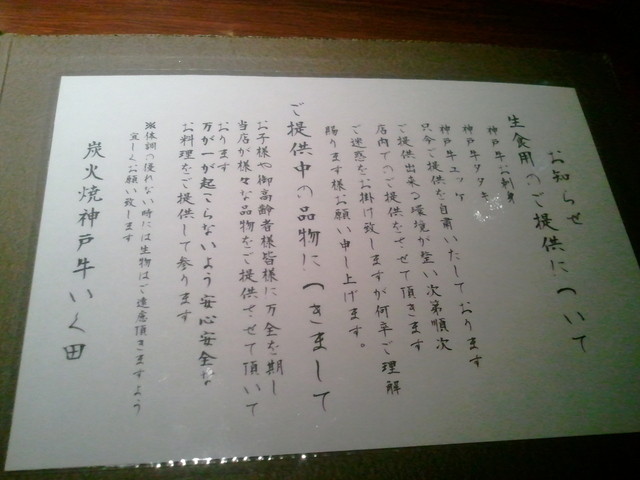 お知らせ
生食用のご提供について
神戸牛お刺身
神戸牛タタキ
神戸牛ユッケ
只今ご提供を自粛いたしております
ご提供出来る環境が整い次第順次
店内でのご提供をさせて頂きます
ご迷惑をお掛け致しますが何卒ご理解
賜ります様お願い申し上げます。
ご提供中の品物につきまして
お子様や御高齢者様皆様に万全を期し
当店が様々な品物をご提供させて頂いて
おります
万が一が起こらないよう安心安全な
お料理をご提供して参ります
※体調の優れない時には生物はご遠慮頂きますよう
宜しくお願い致します
炭火焼神戸牛いく田